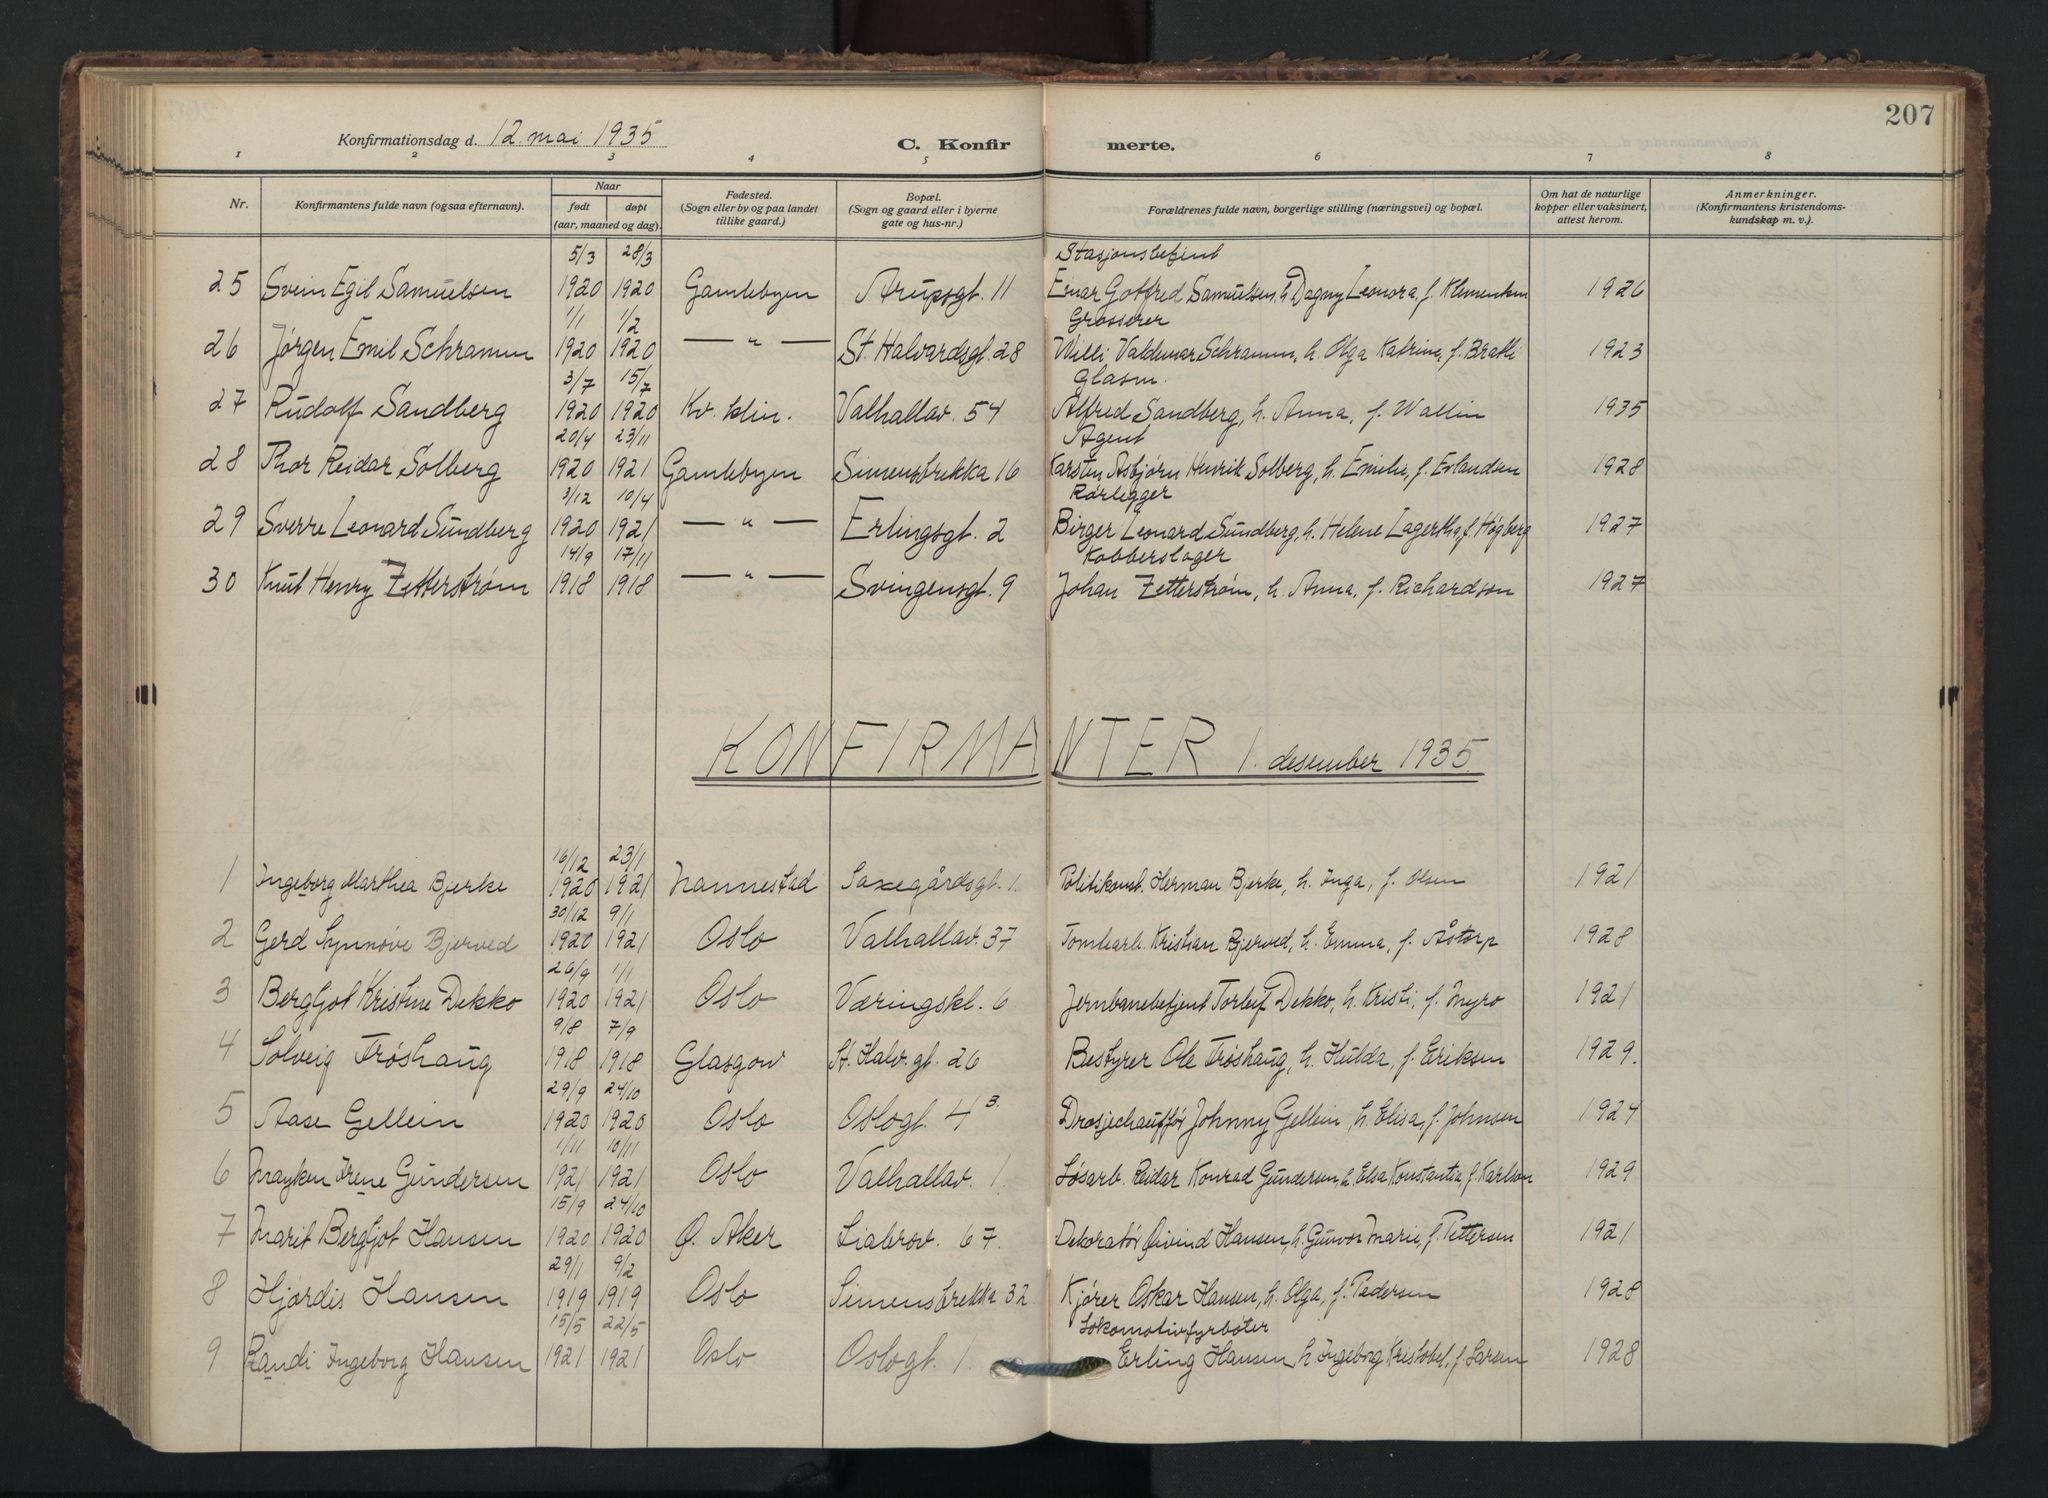 207
Konfirmationsdag d. 12. mai 1935 C. Konfirmerte.
1 2 3 4 5 6 7 8
Nr. Konfirmantens fulde navn (ogsaa efternavn). Naar født døpt (aar, maaned og dag). Fødested. (Sogn eller by og paa landet tillike gaard.) Bopæl. (Sogn og gaard eller i byerne gate og hus-nr.) Forældrenes fulde navn, borgerlige stilling (næringsvei) og bopæl. Om hat de naturlige kopper eller vaksinert, attest herom. Anmerkninger. (Konfirmantens kristendomskundskap m. v.).
5/3 28/3 Stasjonsbetjent
25 Svein Egil Samuelsen 1920 1920 Gamlebyen Arupsgt. 11 Einar Gotfred Samuelsen, h. Dagny Leonora, f. Klementsen 1926
1/1 1/2 Grosserer
26 Jørgen Emil Schramm 1920 1920 — " — St. Halvardsgt. 28 Willi Valdemar Schramm, h. Olga Katrine, f. Bratli 1923
3/7 15/7 Glasm.
27 Rudolf Sandberg 1920 1920 Kv. klin. Valhallav. 54 Alfred Sandberg, h. Anna, f. Wallin 1935
20/4 23/11 Agent
28 Thor Reidar Solberg 1920 1921 Gamlebyen Simensbrekka 16 Karsten Asbjørn Henrik Solberg, h. Emilie, f. Erlandsen 1928
3/12 10/4 Rørlegger
29 Sverre Leonard Sundberg 1920 1921 — " — Erlingsgt. 2 Birger Leonard Sundberg, h. Helene Lagertha, f. Högberg 1927
14/9 17/11 Kobberslager
30 Knut Henry Zetterstrøm 1918 1918 — " — Svingensgt. 9 Johan Zetterstrøm, h. Anna, f. Richardson 1927
KONFIRMANTER 1. desember 1935.
16/12 23/1
1 Ingeborg Marthea Bjerke 1920 1921 Nannestad Saxegårdsgt. 1. Politikonst. Herman Bjerke, h. Inga, f. Olsen 1921
30/12 9/1
2 Gerd Synnøve Bjerved 1920 1921 Oslo Valhallav. 37 Tomtearb. Kristian Bjerved, h. Emma, f. Åstorp 1928
26/9 1/1
3 Bergljot Kristine Dekko 1920 1921 Oslo Væringskl. 6 Jernbanebetjent Torleif Dekko, h. Kristi, f. Myro 1921
9/8 7/9
4 Solveig Frøshaug 1918 1918 Glasgow St. Halv. gt. 26 Bestyrer Ole Frøshaug, h. Hulda, f. Eriksen 1929.
29/9 24/10
5 Aase Gellein 1920 1920 Oslo Oslogt. 4 3. Drosjechauffør Johnny Gellein, h. Elisa, f. Johnsen 1924
1/11 10/11
6 Mayken Irene Gundersen 1921 1921 Oslo Valhallav. 1. Løsarb. Reidar Konrad Gundersen, h. Elsa Konstantia, f. Karlson 1929
15/9 24/10
7 Marit Bergljot Hansen 1920 1920 Ø. Aker Liabrov. 67. Dekoratør Øivind Hansen, h. Gunvor Marie, f. Pettersen 1921
29/1 9/2
8 Hjørdis Hansen 1919 1919 Oslo Simensbrekka 32 Kjører Oskar Hansen, h. Olga, f. Pedersen 1928
15/5 22/5 Lokomotivfyrbøter
9 Randi Ingeborg Hansen 1921 1921 Oslo Oslogt. 1. Erling Hansen, h. Ingeborg Kristobel, f. Larsen 1928